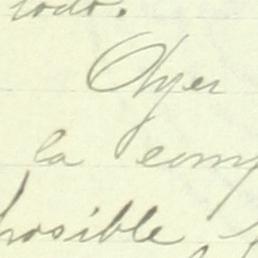 todo.
Ayer
la comp
posible